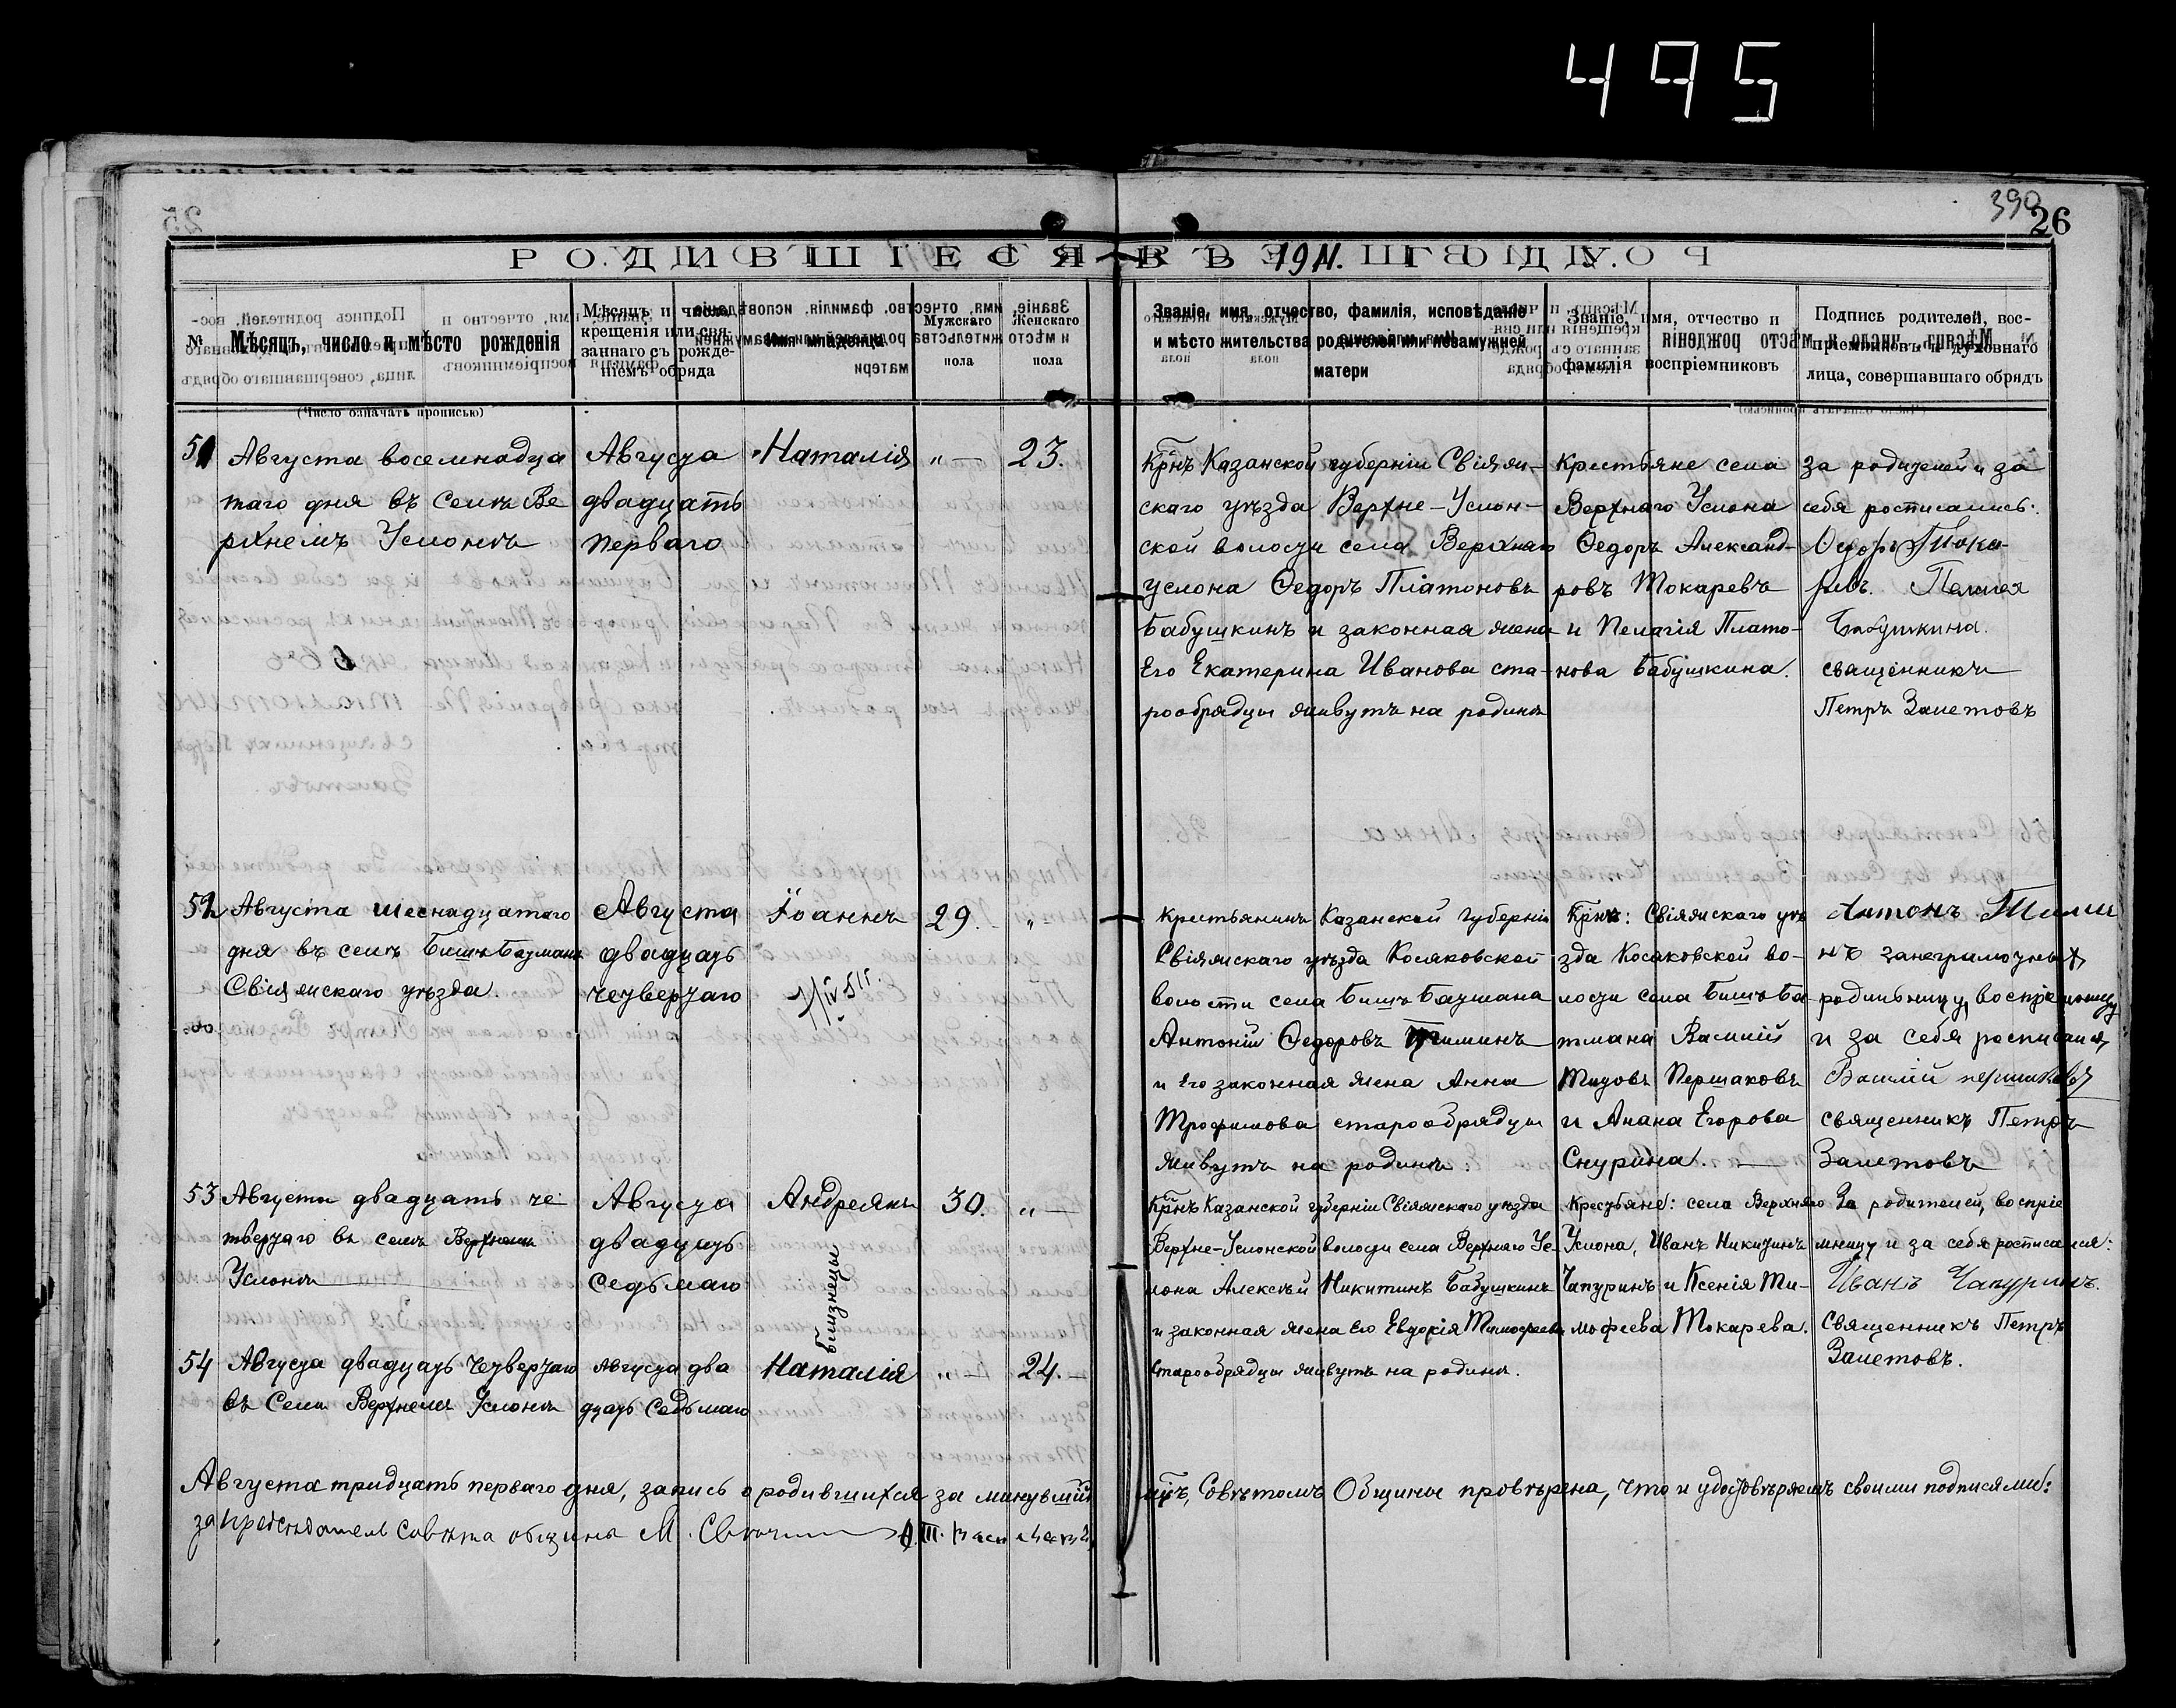 495
390
26
РОДИВШІЕСЯ ВЪ 1911. ГОДУ.
№
Мѣсяцъ, число и мѣсто рожденія
(Число означать прописью)
Мѣсяцъ и число
крещенія или свя-
заннаго съ рожде-
ніемъ обряда
Имя младенца
Мужскаго
пола
Женскаго
пола
Званіе, имя, отчество, фамилія, исповѣданіе
и мѣсто жительства родителей или незамужней
матери
Званіе, имя, отчество и
фамилія воспріемниковъ
Подпись родителей, вос-
пріемниковъ и духовнаго
лица, совершавшаго обрядъ
51
Августа восемнадца
таго дня въ селѣ Ве
рхнемъ Услонѣ
Августа
двадцать
перваго
Наталія
" —
23.
Крнъ Казанской губерніи Свіяж-
скаго уѣзда Верхне-Услон-
ской волости села Верхняго
Услона Федоръ Платоновъ
Бабушкинъ и законная жена
Его Екатерина Иванова ста-
рообрядцы живутъ на родинѣ
Крестьяне села
Верхняго Услона
Федоръ Александ-
ровъ Токаревъ
и Пелагія Плато-
нова Бабушкина.
за родителей и за
себя росписались:
Федоръ Тока-
ревъ. Пелагея
Бабушкина.
священникъ
Петръ Залетовъ
52
Августа шеснадцатаго
дня въ селѣ Бишъ Батмана
Свіяжскаго уѣзда.
Августа
двадцать
четвертаго
Іоаннъ
29.
"
крестьянинъ Казанской губерніи
Свіяжскаго уѣзда Косяковской
волости села Бишъ Батмана
Антоній Федоровъ Тиминъ
и его законная жена Анна
Трофимова старообрядцы
живутъ на родинѣ.
Крнѣ: Свіяжскаго уѣ
зда Косяковской во-
лости села Бишъ Ба-
тмана Василій
Титовъ Першаковъ
и Анана Егорова
Снурина. —
Антонъ Тими
нъ занеграмотныхъ
родильницу, воспріемницу
и за себя росписался,
Василій першаковъ
священникъ Петръ
Залетовъ
53
Августа двадцать че
твертаго въ селѣ Верхнемъ
Услонѣ
Августа
двадцать
седьмаго
Андреянъ
30.
" —
Крнъ Казанской губерніи Свіяжскаго уѣзда
Верхне-Услонской волости села Верхняго Ус-
лона Алексѣй Никитинъ Бабушкинъ
и законная жена Его Евдокія Тимофеева
старообрядцы живутъ на родинѣ.
Крестьяне: села Верхняго
Услона, Иванъ Никитинъ
Чапуринъ и Ксенія Ти-
мофеева Токарева.
За родителей, воспріе
мницу и за себя росписался:
Иванъ Чапуринъ.
Священникъ Петръ
Залетовъ.
близнецы
54
Августа двадцать четвертаго
въ Селѣ Верхнемъ Услонѣ
Августа два
дцать седьмаго
Наталія
" —
24.
Августа тридцать перваго дня, запись о родившихся за минувшій
мц҃ъ, Совѣтомъ Общины провѣрена, что и удостовѣряемъ своими подписями:
за предсѣдатель совѣта общины М.